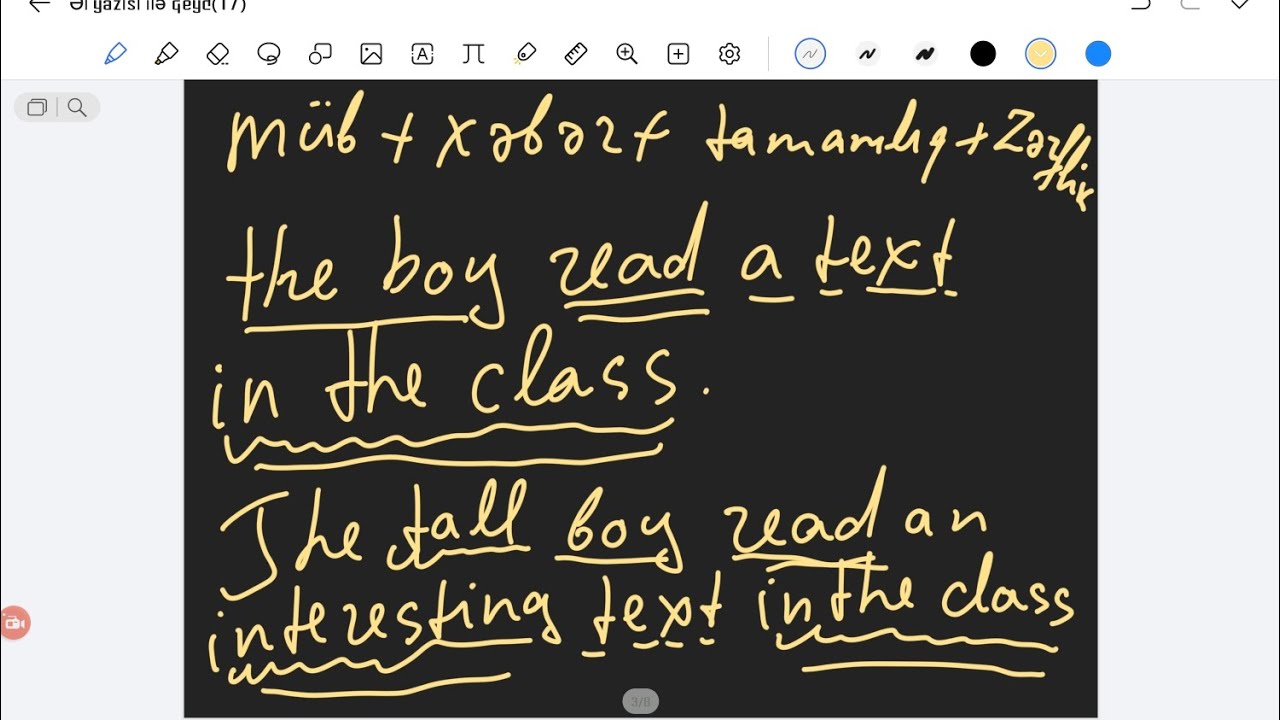 Əl yazısı ilə qeyd(17)
müb + xəbər + tamamlıq + Zərflik
the boy read a text
in the class.
The tall boy read an
interesting text in the class
3/8